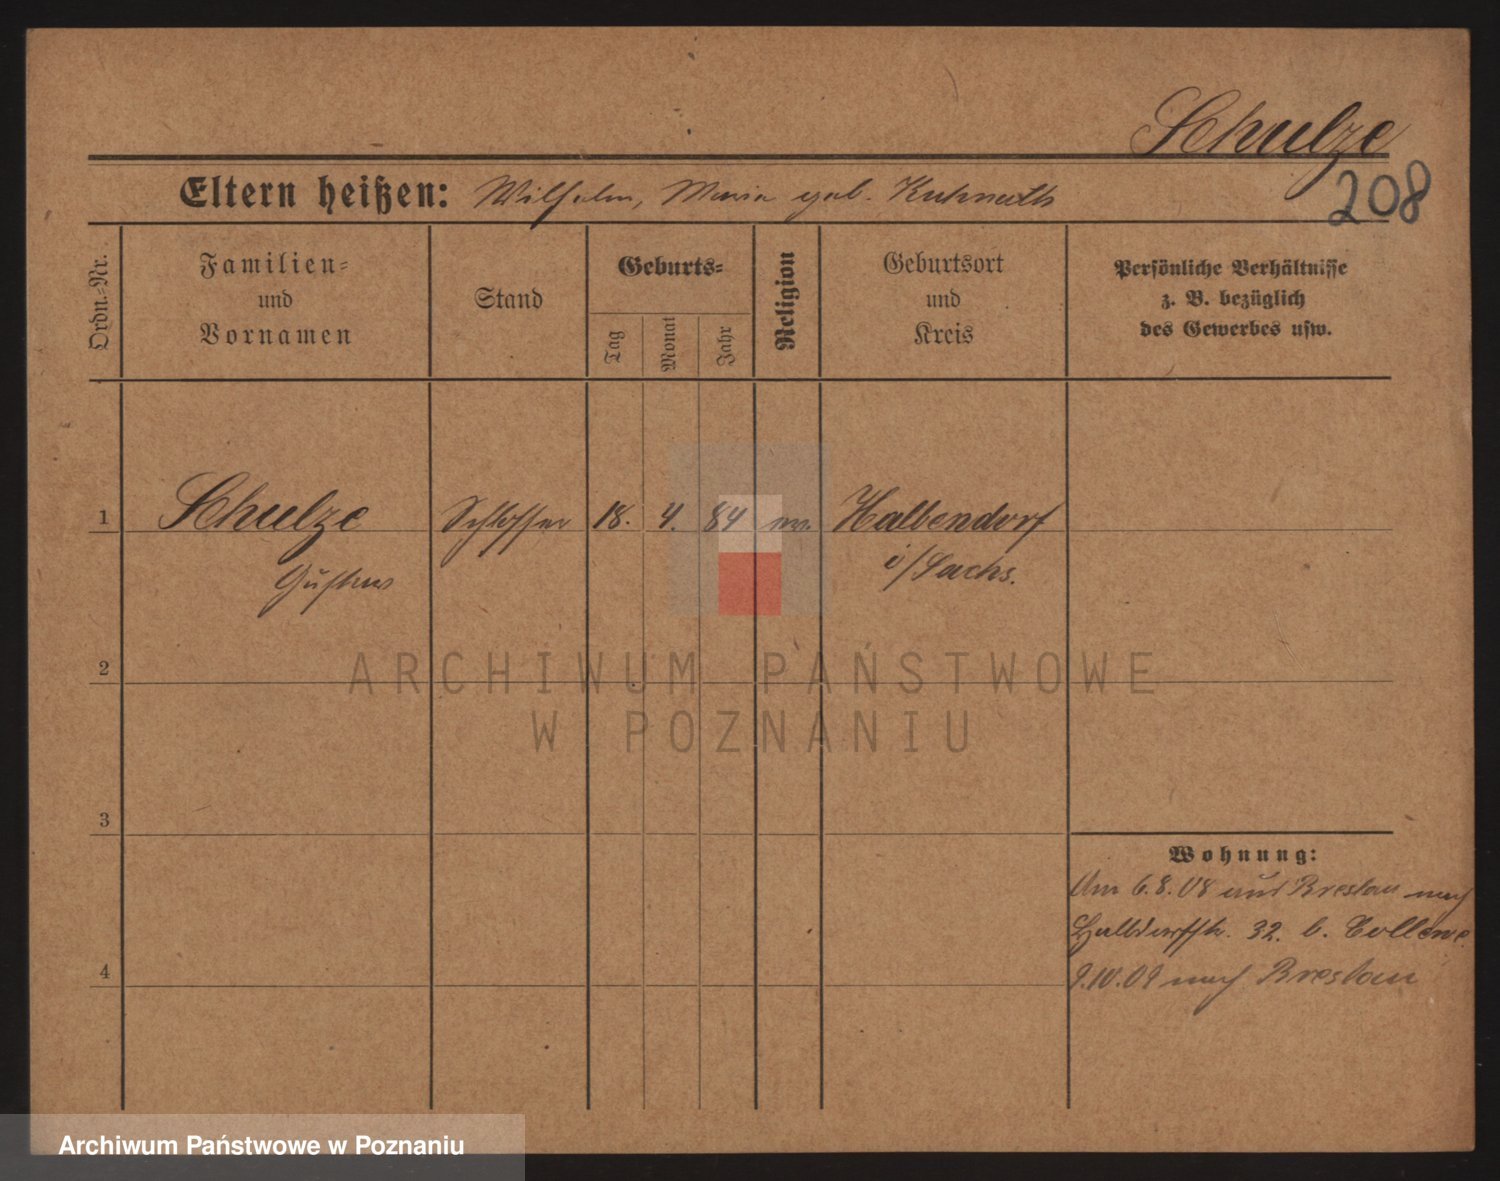 Schulze
208
Eltern heißen: Wilhelm, Maria geb. Kuhnath
Ordn.-Nr.
Familien-
und
Vornamen
Stand
Geburts-
Tag
Monat
Jahr
Religion
Geburtsort
und
Kreis
Persönliche Verhältnisse
z. B. bezüglich
des Gewerbes usw.
1 Schulze Schlosser 18. 4. 84 ev. Halbendorf
Gustav i/Sachs.
2
3
4
Wohnung:
Am 6.8.08 aus Breslau nach
Halbdorfstr. 32. b.
9.10.09 nach Breslau
ARCHIWUM PAŃSTWOWE
W POZNANIU
Archiwum Państwowe w Poznaniu